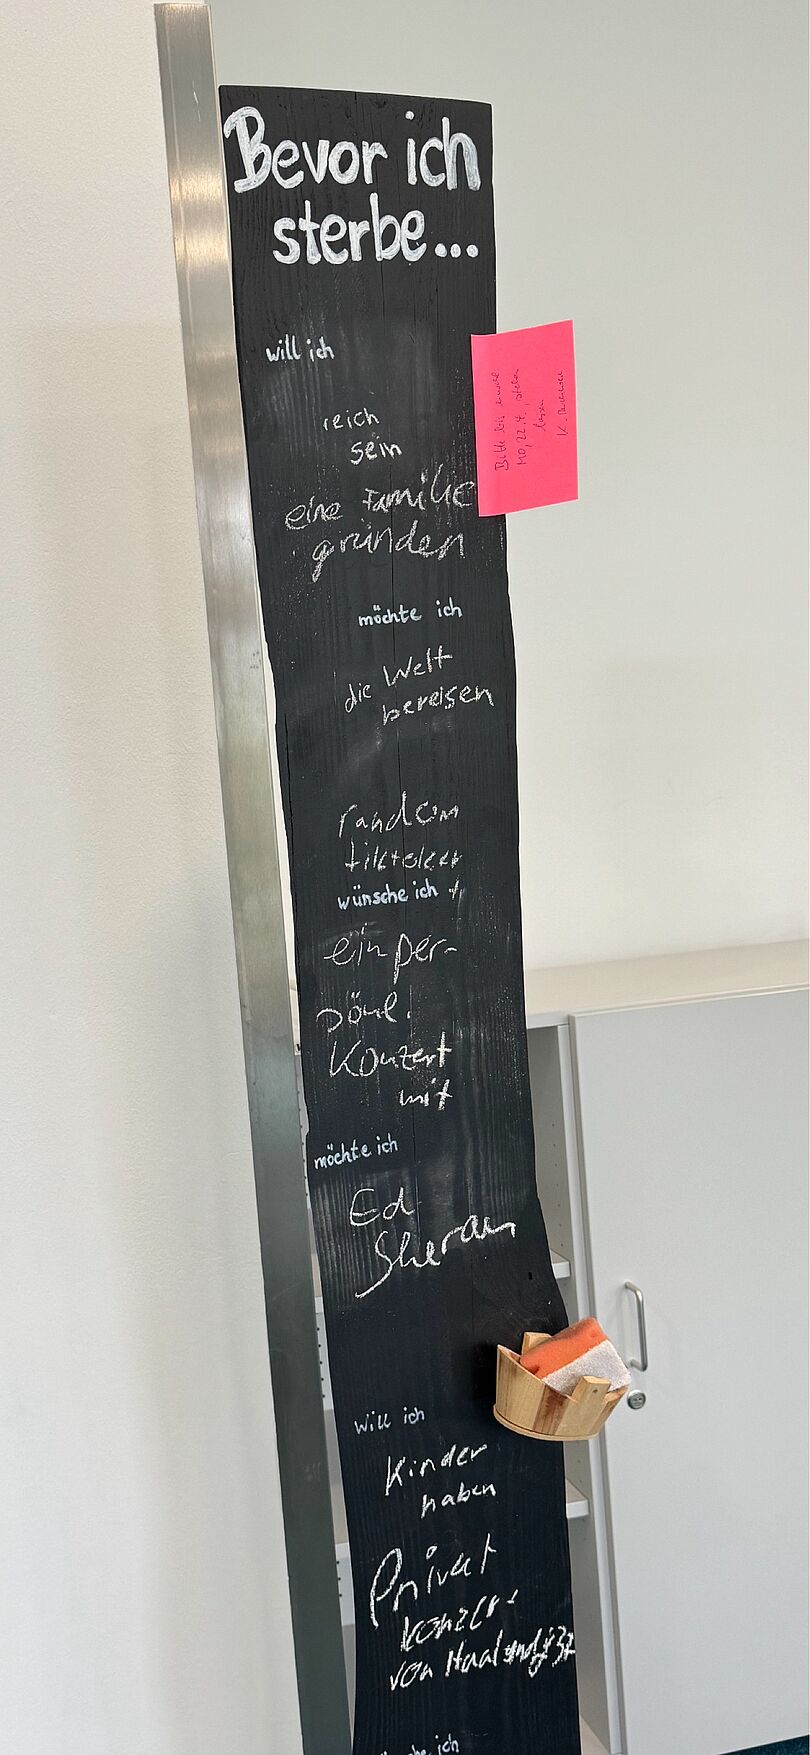 Bevor ich
sterbe...
will ich
reich
sein
eine Familie
gründen
möchte ich
die Welt
bereisen
random
tiktoker
wünsche ich
ein per-
sönl.
Konzert
mit
möchte ich
Ed
Sheran
will ich
Kinder
haben
Privat
konzert
von Haaland
ich
Bitte bis
Mo, 22.4. stehen
lassen
K.